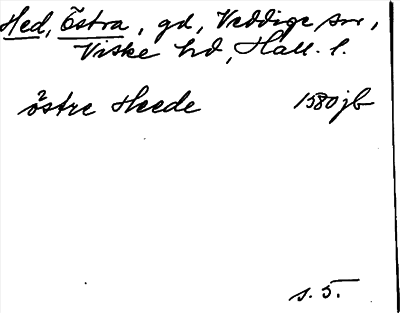 Hed, Östra, gd, Veddige sn,
Viske hd, Hall. l.
östre Heede 1580 jb
s. 5.